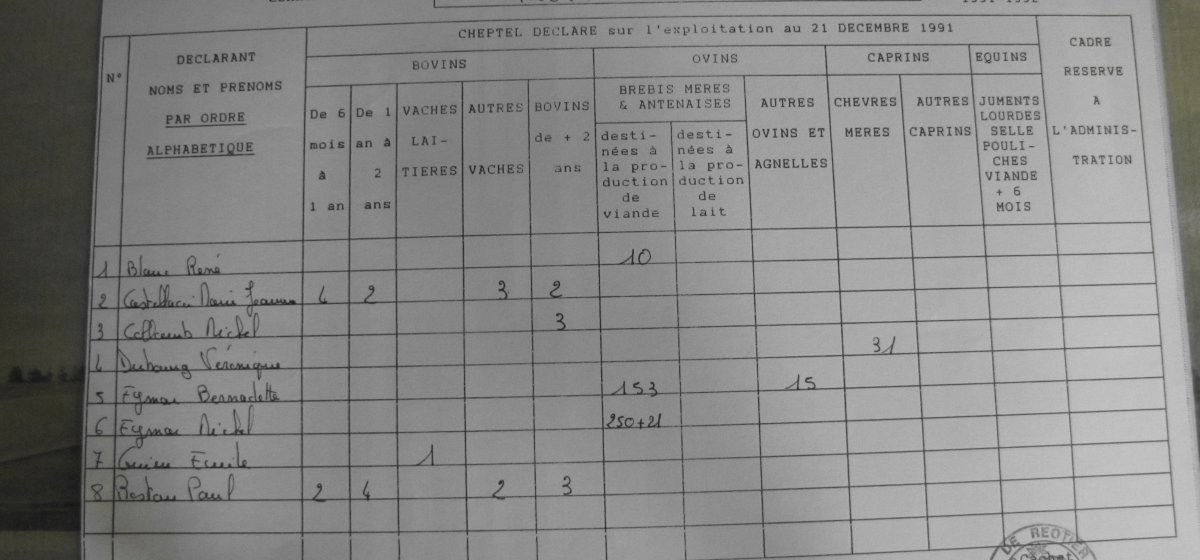 CHEPTEL DECLARE sur l'exploitation au 21 DECEMBRE 1991
N°
DECLARANT
NOMS ET PRENOMS
PAR ORDRE
ALPHABETIQUE
BOVINS
OVINS
CAPRINS
EQUINS
CADRE
RESERVE
A
L'ADMINIS-
TRATION
De 6
mois
à
1 an
De 1
an à
2
ans
VACHES
LAI-
TIERES
AUTRES
VACHES
BOVINS
de + 2
ans
BREBIS MERES
& ANTENAISES
desti-
nées à
la pro-
duction
de
viande
desti-
nées à
la pro-
duction
de
lait
AUTRES
OVINS ET
AGNELLES
CHEVRES
MERES
AUTRES
CAPRINS
JUMENTS
LOURDES
SELLE
POULI-
CHES
VIANDE
+ 6
MOIS
1 Blanc René 10
2 Marie Jeanne 4 2 3 2
3 Michel 3
4 Dubourg Véronique 31
5 Eymar Bernadette 153 15
6 Eymar Michel 250+21
7 Emile 1
8 Paul 2 4 2 3
DE REOTIER